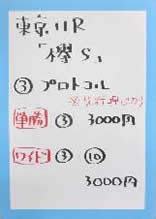 東京11R
「欅S」
③ プロトコル
単勝 ③ 3000円
ワイド ③ ⑩
3000円